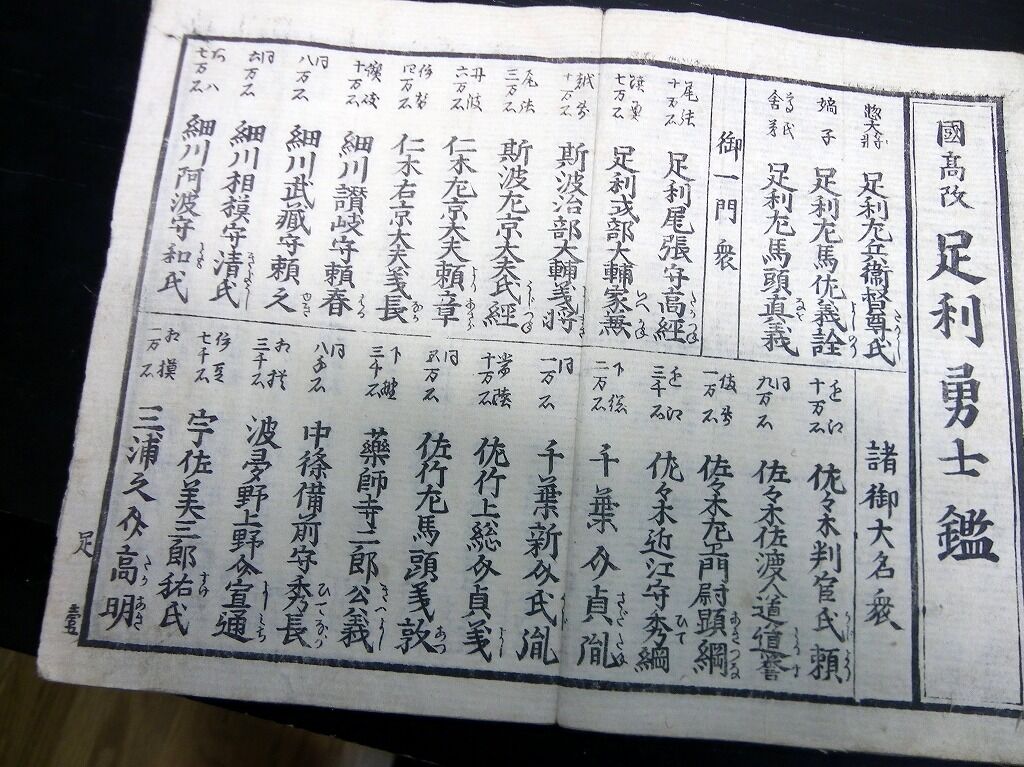 國高改 足利勇士鑑
惣大將 足利左兵衞督尊氏
嫡子 足利左馬佐義詮
尊氏舍弟 足利左馬頭直義
御一門衆
尾張十万石 足利尾張守高經
七万石 足利式部大輔家兼
越前十万石 斯波治部大輔義將
尾張三万石 斯波左京大夫氏經
丹波六万石 仁木左京大夫頼章
伊勢四万石 仁木右京大夫義長
讃岐十万石 細川讃岐守頼春
同八万石 細川武藏守頼之
同六万石 細川相模守清氏
七万石 細川阿波守和氏
諸御大名衆
近江十万石 佐々木判官氏頼
同九万石 佐々木佐渡入道道誉
備前一万石 佐々木左衛門尉顕綱
近江三千石 佐々木近江守秀綱
下総二万石 千葉介貞胤
同一万石 千葉新介氏胤
常陸十万石 佐竹上総介貞義
同五万石 佐竹左馬頭義敦
下野三千石 藥師寺二郎公義
同八千石 中條備前守秀長
相摸三千石 波多野上野介宣通
伊豆七千石 宇佐美三郎祐氏
相模一万石 三浦之介高明
足
壹